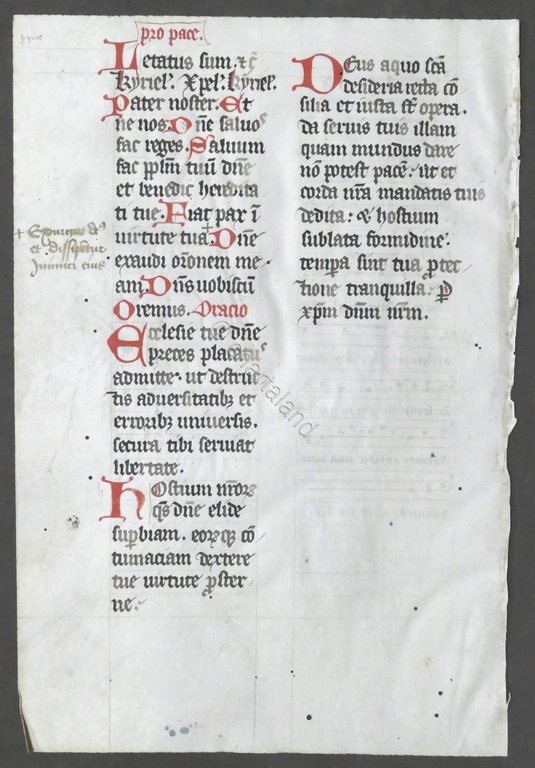 pro pace.
Letatus sum ⁊c̄
Kyriel'. Xpel'. kyriel'.
Pater noster. Et
ne nos. Dn̄e saluos
fac reges. Saluum
fac pplm̄ tuū dn̄e
et benedic heredita
ti tue. Fiat pax ī
uirtute tua. Dn̄e
exaudi or̄onem me
am. Dn̄s uobiscū
Oremus. Oracio
Ecclesie tue dn̄e
preces placatus
admitte. ut destruc
tis aduersitatibꝫ et
erroribꝫ uniuersis.
secura tibi seruiat
libertate.
Hostium nr̄orꝫ
qs̄ dn̄e elide
suꝑbiam. eorꝫqꝫ cō
tumaciam dextere
tue uirtute ꝓster
ne.
+ Exurgat ds̄
et dissipentur
inimici eius
Deus a quo scā
desideria recta cō
silia et iusta st̄ opera.
da seruis tuis illam
quam mundus dare
nō potest pacē. ut et
corda nr̄a mandatis tuis
dedita. et hostium
sublata formidine.
tempora sint tua ꝓtec
tione tranquilla. P
xp̄m dn̄m nr̄m.
chartaland